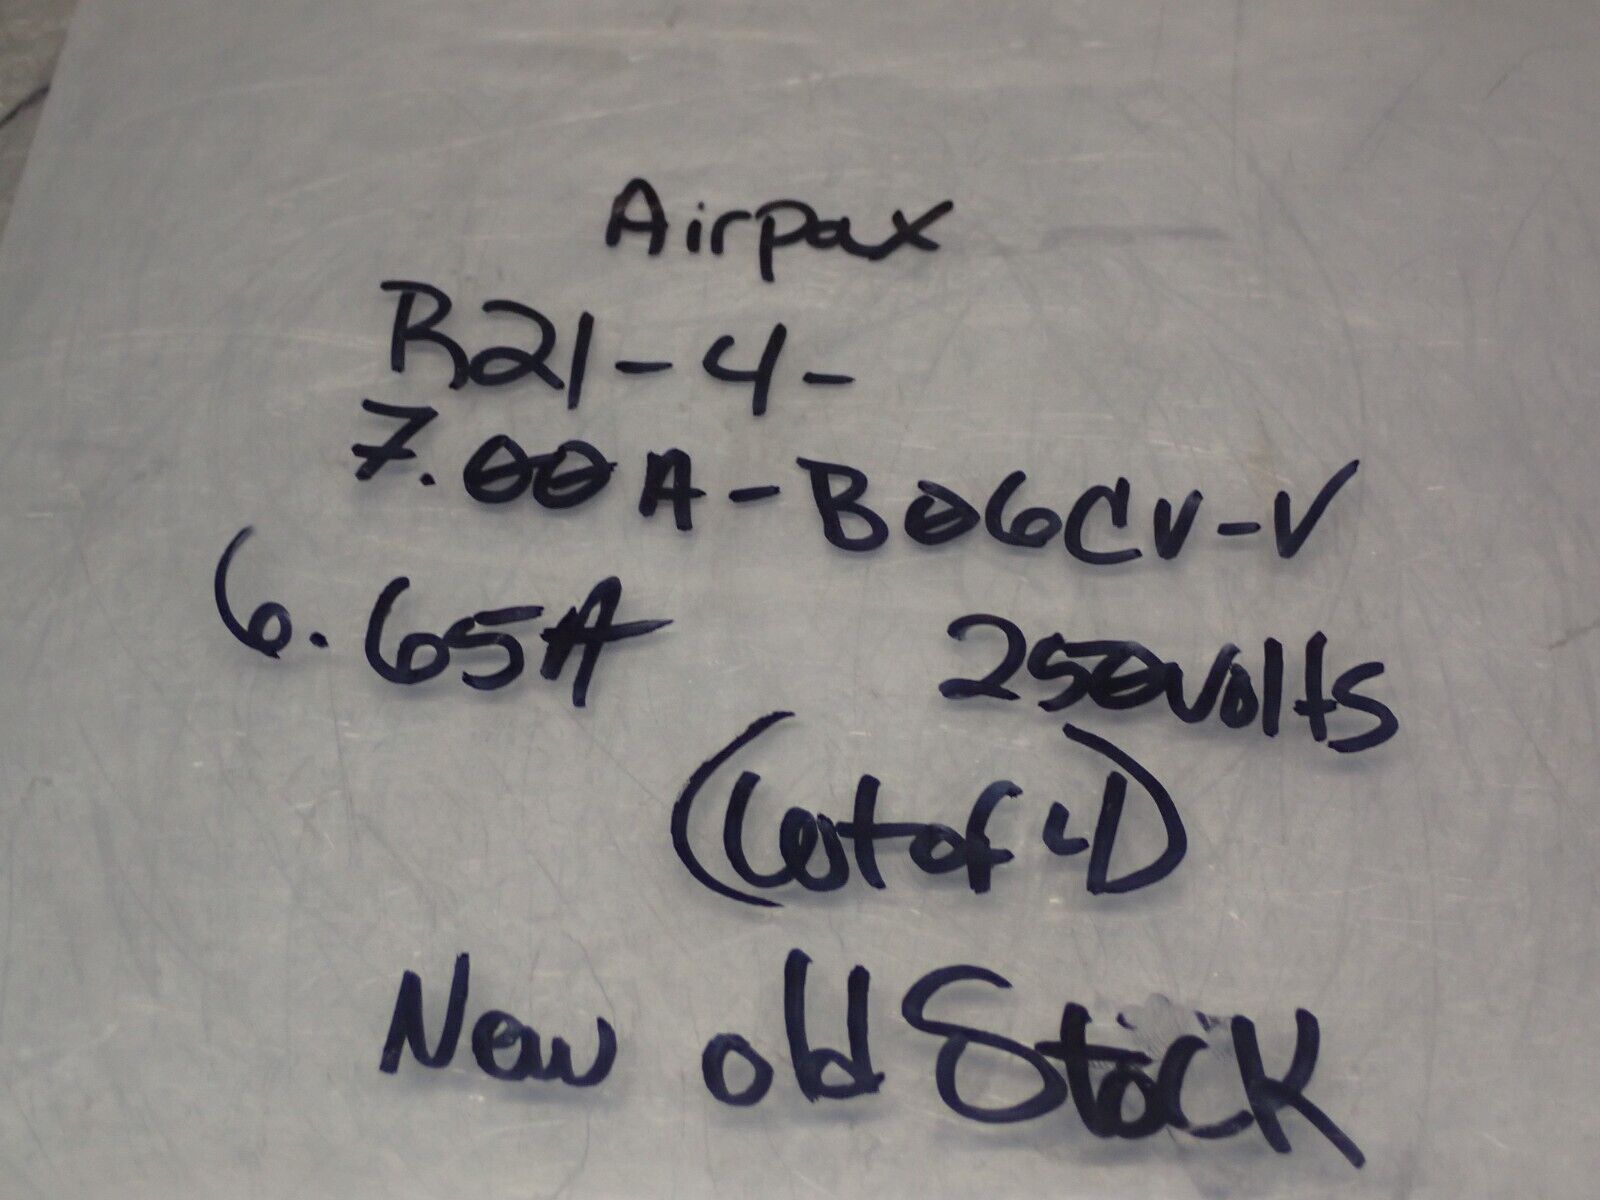 Airpax
R21-4-
7.00A-B06CV-V
6.65A 250volts
(Lot of 4)
New old Stock